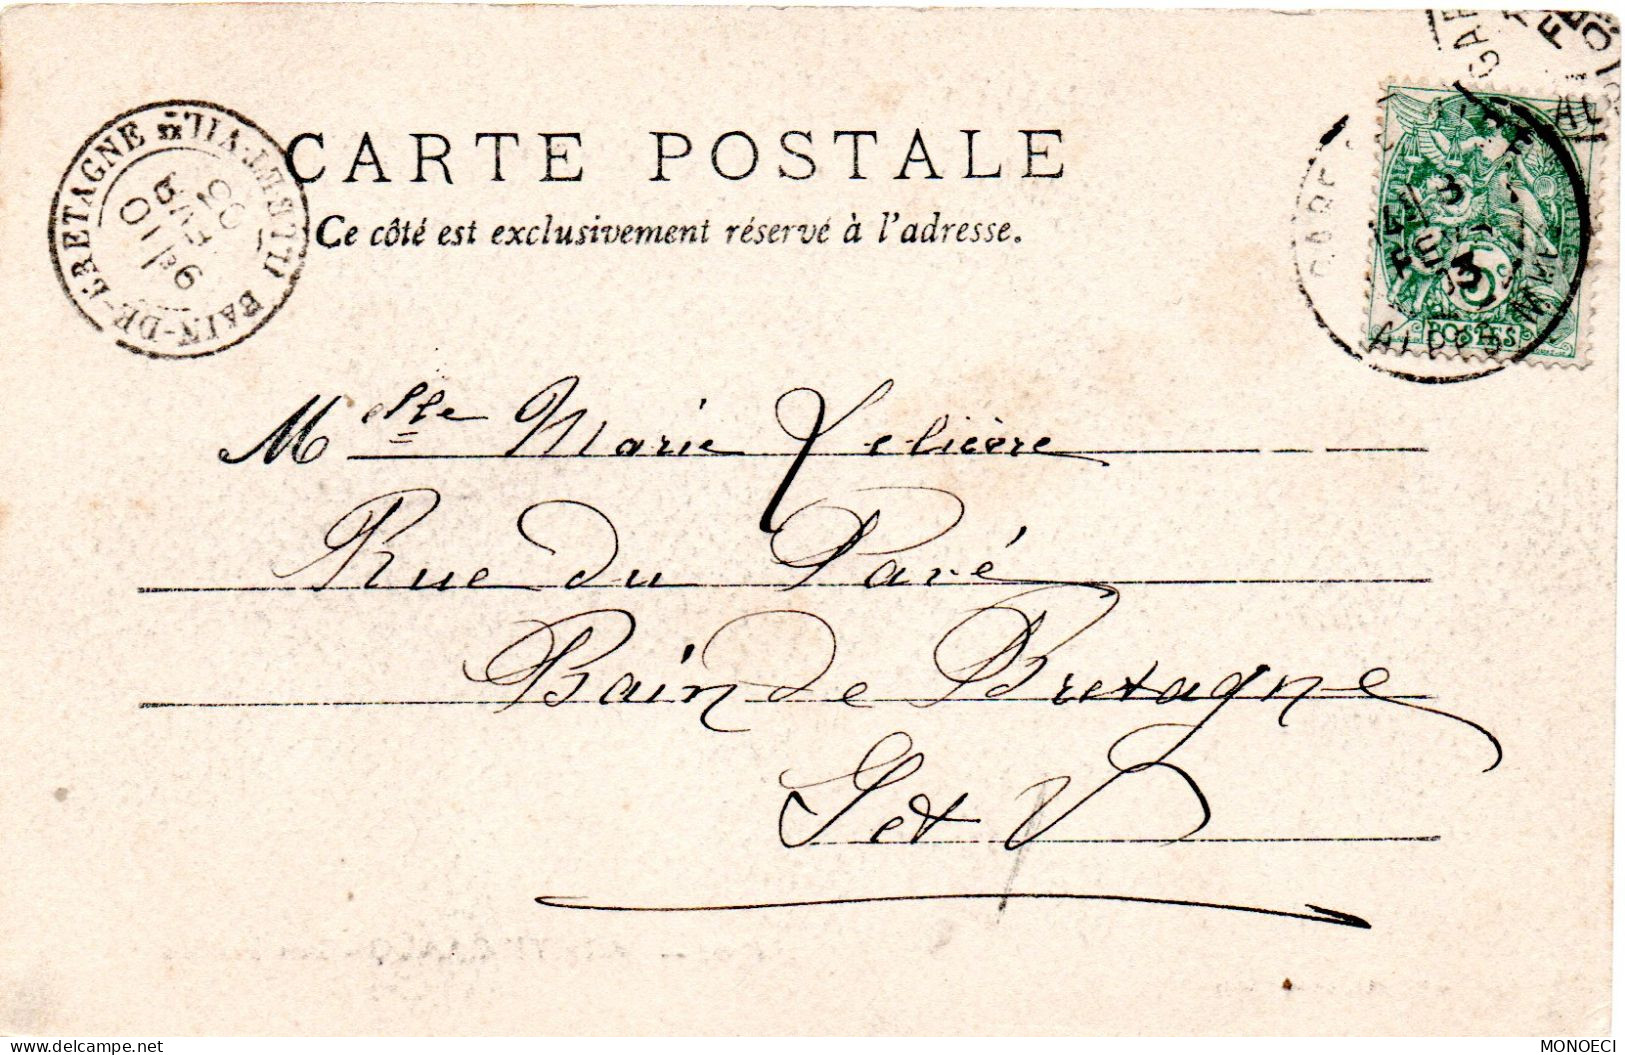 CARTE POSTALE
Ce côté est exclusivement réservé à l'adresse.
BAIN-DE-BRETAGNE ILLE-ET-VIL.
9E / 10
FEVR
05
POSTES
5
ALPES MARIT
Melle Marie Lelièvre
Rue du Pavé
Bain de Bretagne
I et V
MONOECI